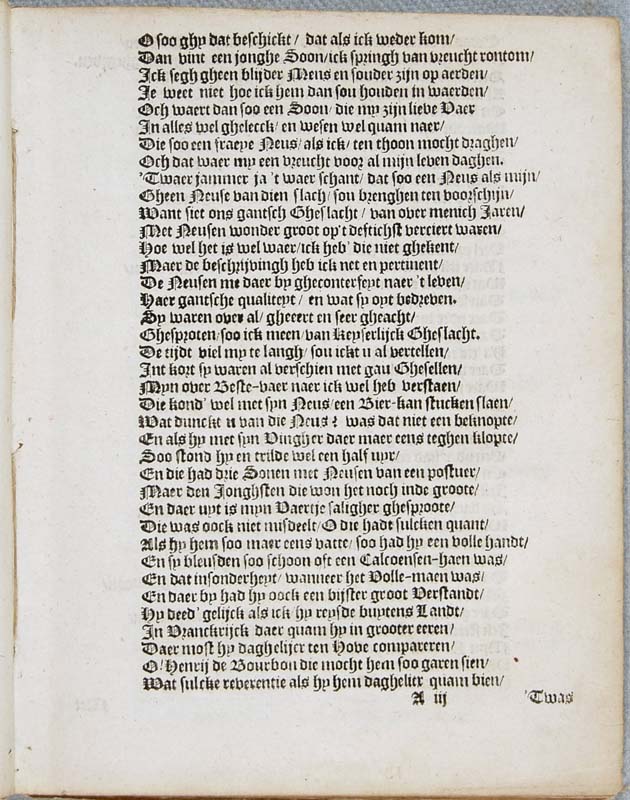 O soo ghy dat beschickt / dat als ick weder kom /
Dan vint een jonghe Soon / ick springh van vreucht rontom /
Ick segh gheen blijder Mens en souder zijn op aerden /
Je weet niet hoe ick hem dan sou houden in waerden /
Och waert dan soo een Soon / die my zijn lieve Vaer
In alles wel ghelecck / en wesen wel quam naer /
Die soo een fraeye Neus / als ick / ten thoon mocht draghen /
Och dat waer my een vreucht voor al mijn leven daghen.
'Twaer jammer ja 't waer schant / dat soo een Neus als mijn /
Gheen Neuse van dien slach / sou brenghen ten voorschijn /
Want siet ons gantsch Gheslacht / van over menich Jaren /
Met Neusen wonder groot op't deftichst verciert waren /
Hoe wel het is wel waer / ick heb' die niet ghekent /
Maer de beschrijvingh heb ick net en pertinent /
De Neusen me daer by gheconterfeyt naer 't leven /
Haer gantsche qualiteyt / en wat sy oyt bedreven.
Sy waren over al / gheeert en seer gheacht /
Ghesproten / soo ick meen / van Keyserlijck Gheslacht.
De tijdt viel my te langh / sou ickt u al vertellen /
Int kort sy waren al verschien met gau Ghesellen /
Myn over Beste-vaer naer ick wel heb verstaen /
Die kond' wel met syn Neus / een Bier-kan stucken slaen /
Wat dunckt u van die Neus? was dat niet een beknopte /
En als hy met syn Vingher daer maer eens teghen klopte /
Soo stond hy en trilde wel een half uyr /
En die had drie Sonen met Neusen van een postuer /
Maer den Jonghsten die won het noch inde groote /
En daer uyt is myn Vaertje saligher ghesproote /
Die was oock niet misdeelt / O die hadt sulcken quant /
Als hy hem soo maer eens vatte / soo had hy een volle handt /
En sy bleusden soo schoon oft een Calcoensen-haen was /
En dat insonderheyt / wanneer het Volle-maen was /
En daer by had hy oock een bijster groot Verstandt /
Hy deed' gelijck als ick hy reysde buytens Landt /
In Vranckrijck daer quam hy in grooter eeren /
Daer most hy daghelijcx ten Hove compareren /
O! Henrij de Bourbon die mocht hem soo garen sien /
Wat sulcke reverentie als hy hem daghelicx quam bien /
A iij 'Twas